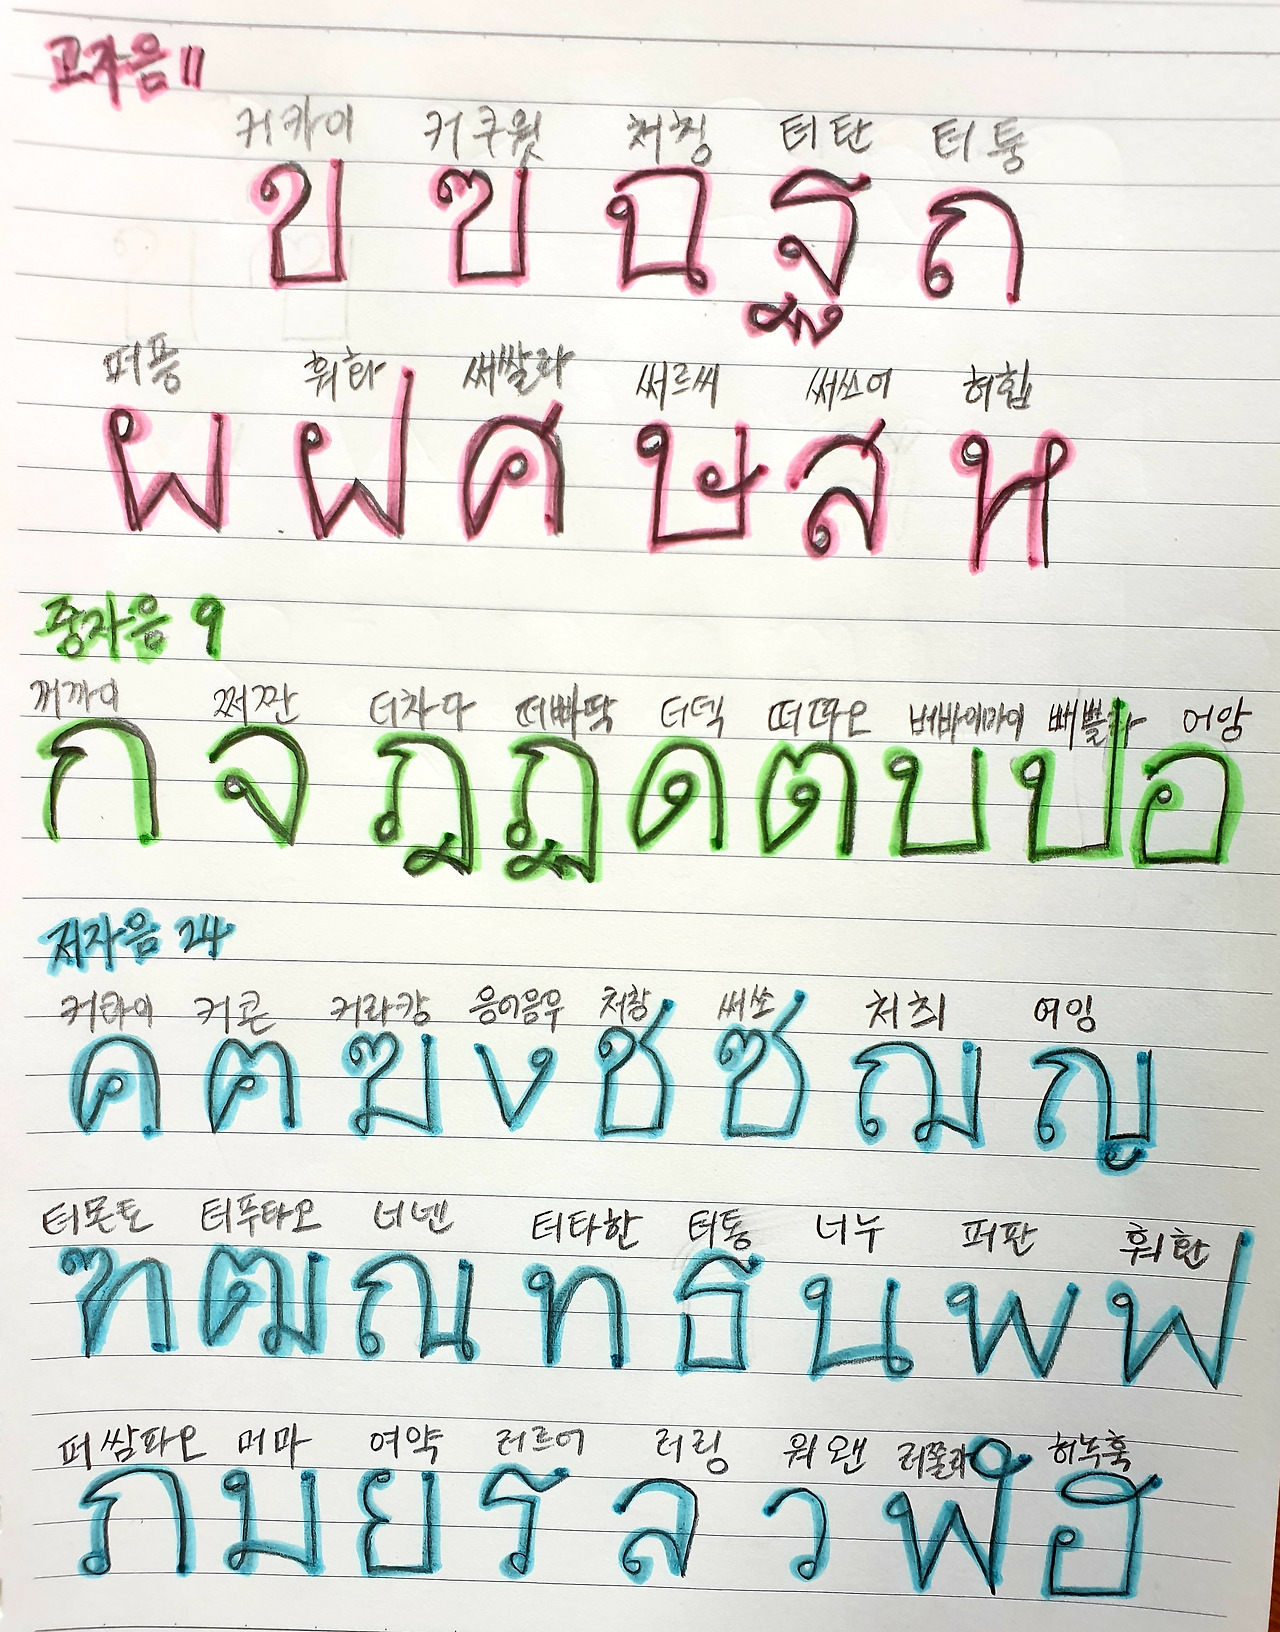 고자음 11
커카이 커쿠윗 처칭 터탄 터퉁
ข ฃ ฉ ฐ ถ
퍼픙 훠화 써쌀라 써르써 써쓰어 허힙
ผ ฝ ศ ษ ส ห
중자음 9
꺼까이 쩌짠 더차다 떠빠딱 더덱 떠따오 버바이마이 뻐쁠라 어앙
ก จ ฎ ฏ ด ต บ ป อ
저자음 24
커콰이 커콘 커라캉 응어응우 처창 써쏘 처최 여잉
ค ฅ ฆ ง ช ซ ฌ ญ
터몬토 터푸타오 너넨 터타한 터통 너누 퍼판 훠환
ฑ ฒ ณ ท ธ น พ ฟ
퍼쌈파오 머마 여약 러르어 러링 워왠 러쭐라 허녹훅
ภ ม ย ร ล ว ฬ ฮ